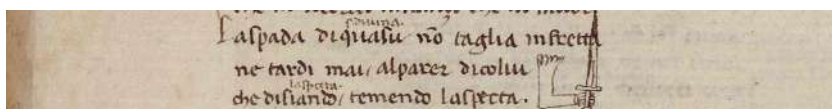 Laspada diquasu nō taglia infretta
s. diuina.
ne tardi mai, alparer dicolui
laspecta.
che disiando, temendo laspecta.